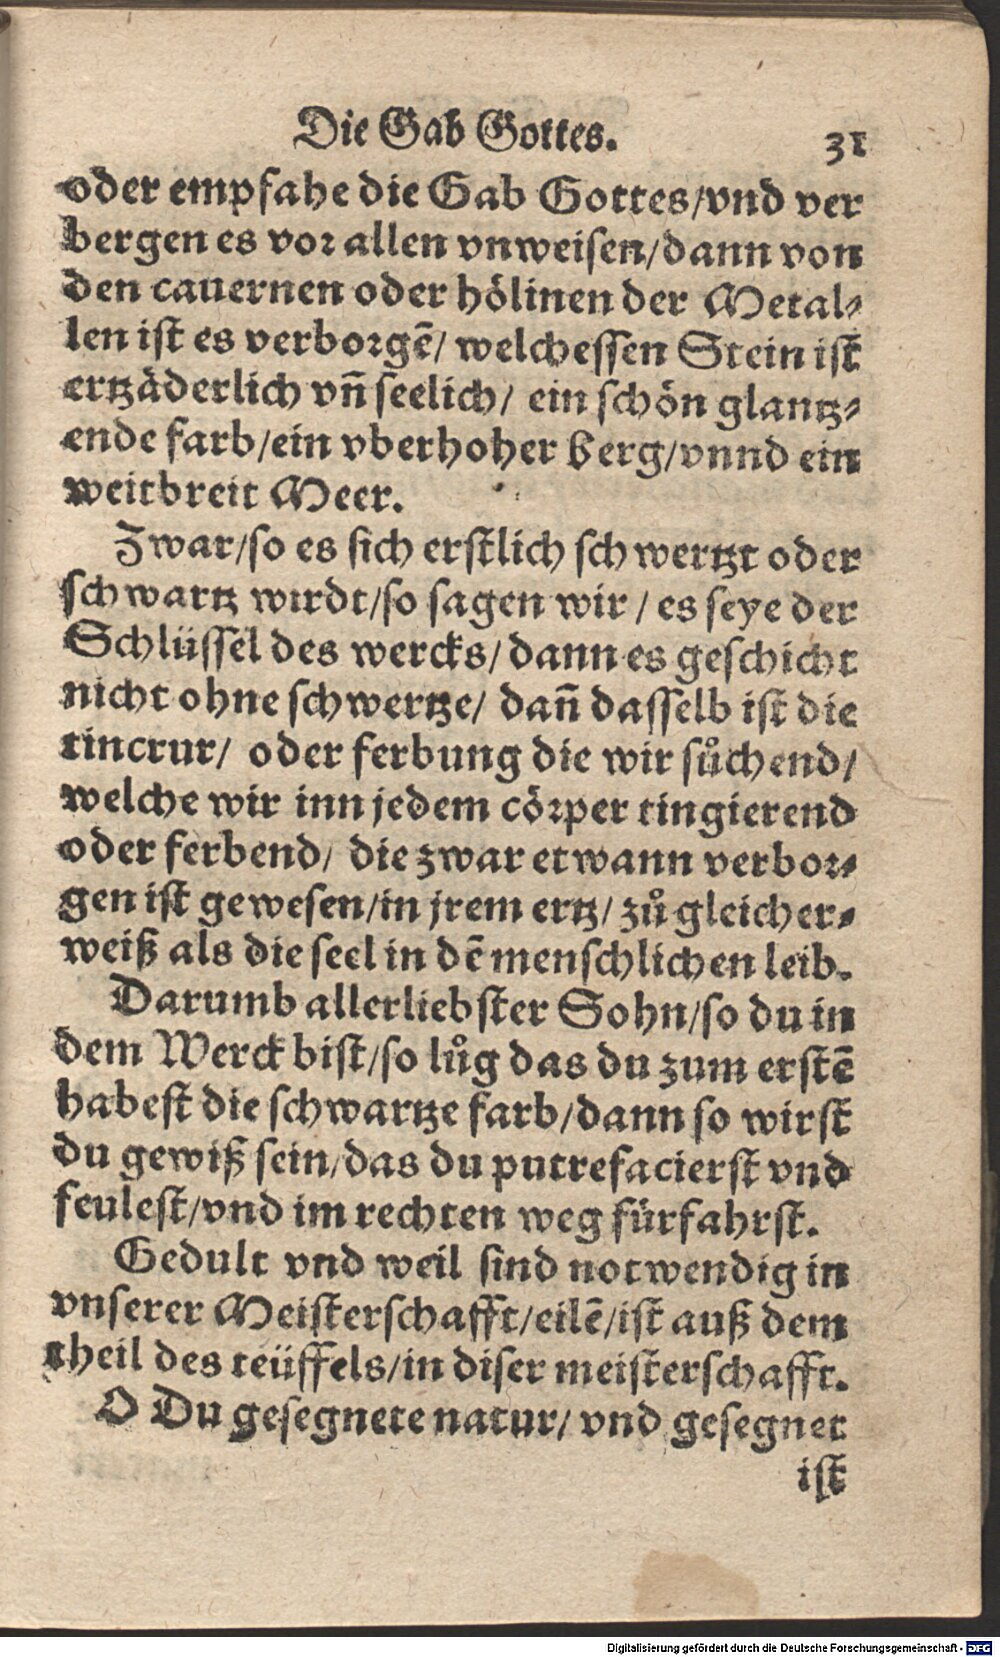 Die Gab Gottes. 31
oder empfahe die Gab Gottes/vnd ver
bergen es vor allen vnweisen/dann von
den cauernen oder hölinen der Metal⸗
len ist es verborgē/ welchessen Stein ist
ertzäderlich vñ seelich/ ein schön glantz⸗
ende farb/ein vberhoher berg/vnnd ein
weitbreit Meer.
Zwar/so es sich erstlich schwertzt oder
schwartz wirdt/so sagen wir / es seye der
Schlüssel des wercks/ dann es geschicht
nicht ohne schwertze/ dañ dasselb ist die
tinctur/ oder ferbung die wir sůchend/
welche wir inn jedem cörper tingierend
oder ferbend/ die zwar etwann verbor⸗
gen ist gewesen/in jrem ertz/ zů gleicher⸗
weiß als die seel in dē menschlichen leib.
Darumb allerliebster Sohn/so du in
dem Werck bist/so lůg das du zum erstē
habest die schwartze farb/dann so wirst
du gewiß sein/das du putrefacierst vnd
feulest/vnd im rechten weg fürfahrst.
Gedult vnd weil sind notwendig in
vnserer Meisterschafft/eilē/ist auß dem
theil des teüffels/in diser meisterschafft.
O Du gesegnete natur/ vnd gesegnet
ist
Digitalisierung gefördert durch die Deutsche Forschungsgemeinschaft - DFG